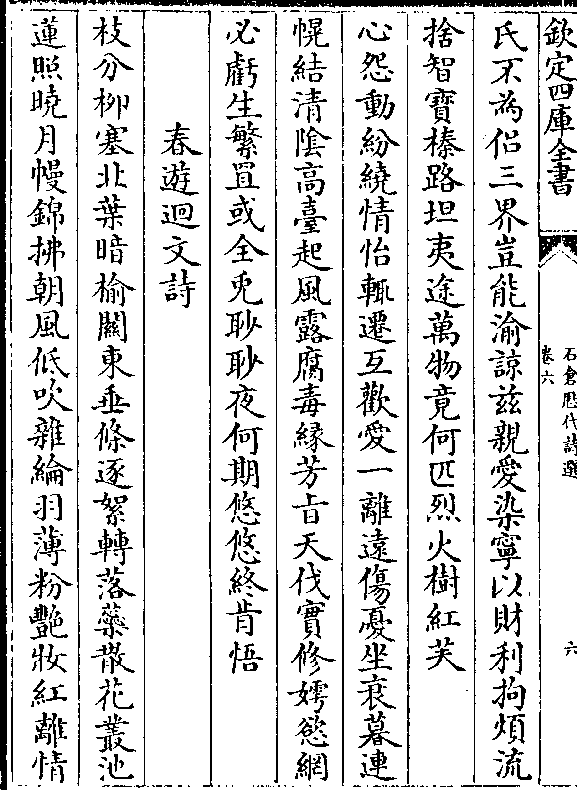 欽定四庫全書
石倉歴代詩選
卷六
六
氏不為侣三界豈能渝諒兹親愛染寧以財利拘煩流
捨智寶榛路坦夷途萬物竟何匹烈火樹紅芙
心怨動紛繞情怡輒遷互歡愛一離遠傷憂坐衰暮連
幌結清陰高臺起風露腐毒縁芳旨天伐實修嫮慾網
必虧生繁罝或全兎眇眇夜何期悠悠終肯悟
春遊迴文詩
枝分柳塞北葉暗榆關東垂條逐絮轉落蘂散花叢池
蓮照曉月幔錦拂朝風低吹雜綸羽薄粉艷妝紅離情